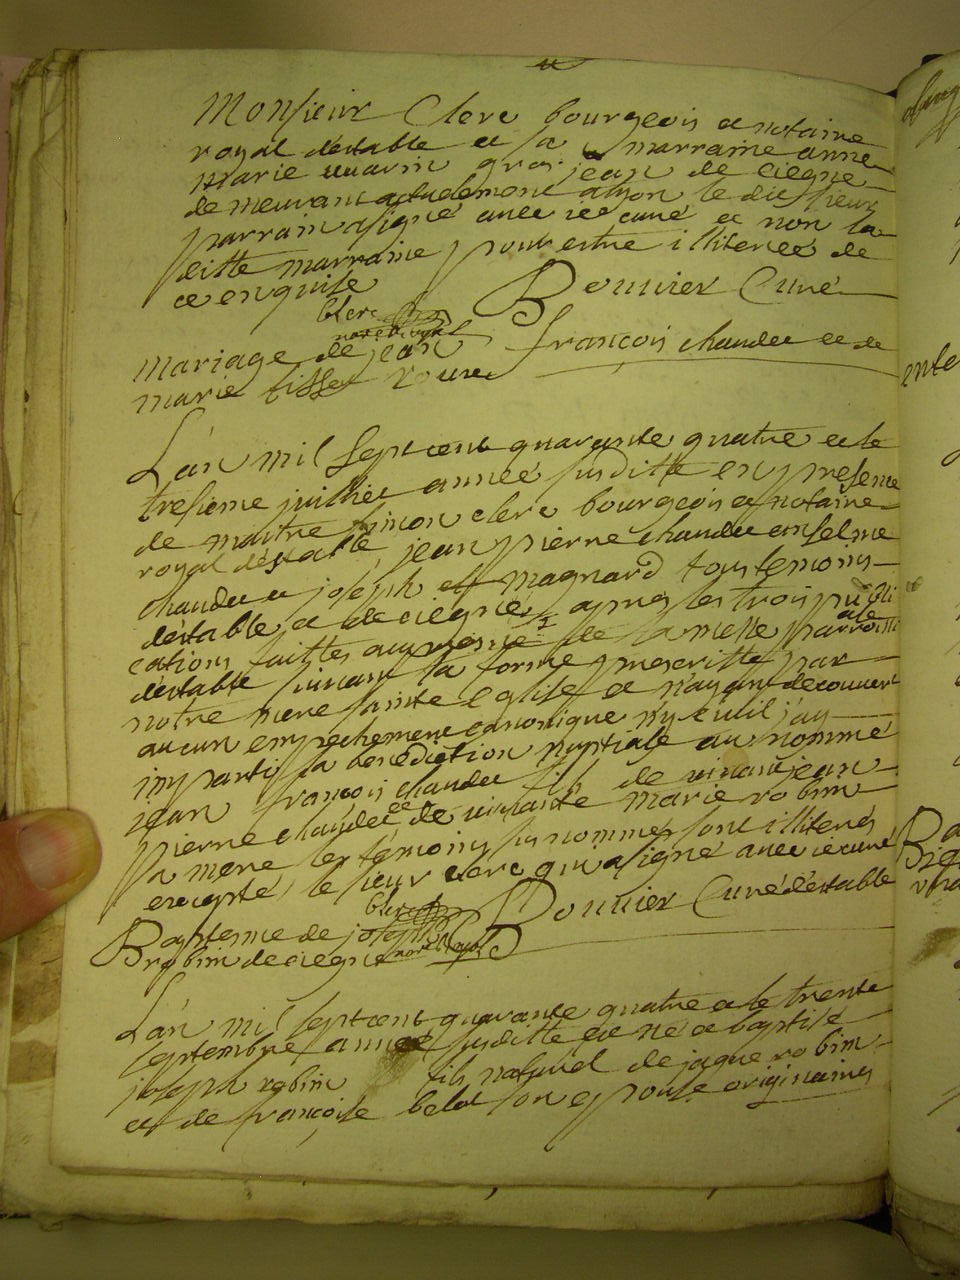 Monsieur Clerc bourgeois et notaire
royal destable et sa marraine anne
marie jean de ciegne
de meurant actuelement a lyon le dit sieur
parrain a signé avec ie curé et non la
ditte marraine pour estre illiteree de
ce enquise
Bouvier Curé
Clerc
not royal
mariage de jean françois chaudee et de
marie tisser roure
L'an mil sept cent quarante quatre et le
tresieme juillet année susditte en presence
de maitre simon clerc bourgeois et notaire
royal destable, jean pierre chaudee anselme
chaudee joseph magnard tous temoins
destable et de ciegne apres les trois publi
cations faittes au prosne de la messe parroissi
ale
destable suivant la forme prescritte par
notre mere sainte Eglise et n'ayant decouvert
aucun empechement canonique ny civil j'ay
imparti la benediction nuptiale au nommé
jean françois chaudee fils de vivant jean
pierre chaudee et de vivante marie robin
sa mere les temoins susnommes sont illiteres
excepté le sieur clerc qui a signé avec ie curé
Bouvier Curé destable
Clerc
not royal
Bapteme de joseph
robin de ciegne
L'an mil sept cent quarante quatre et le trente
septembre année susditte est né et baptisé
joseph robin fils naturel de jaque robin
et de françoise belot son epouse originaires